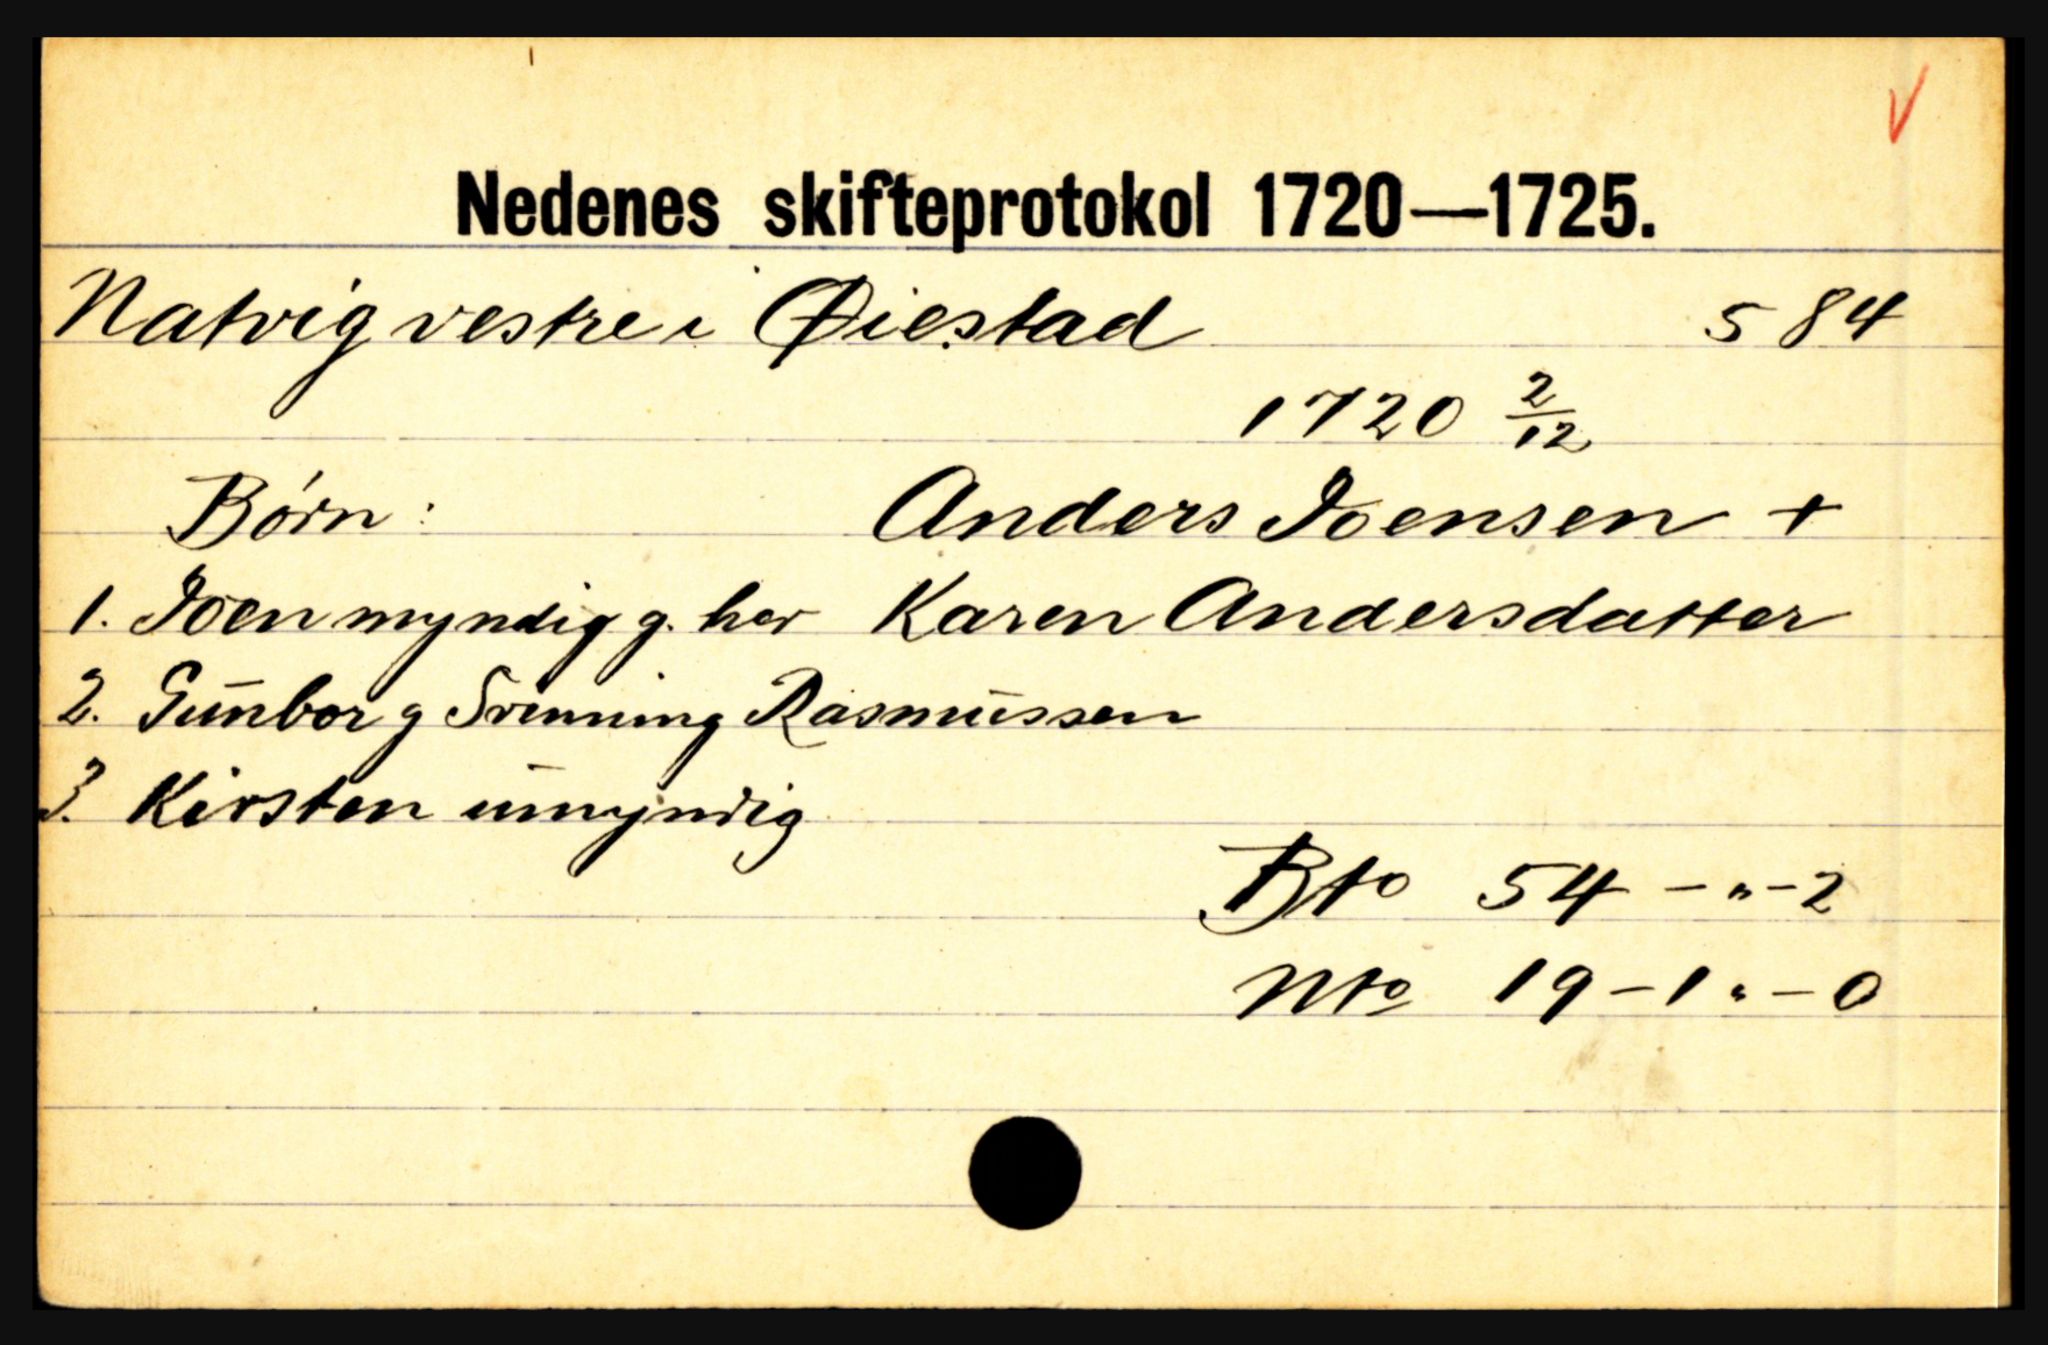 Nedenes skifteprotokol 1720—1725.
Natvig vestre i Øiestad 584
1720 2/12
Børn: Anders Joensen +
1. Joen myndig g. her Karen Andersdatter
2. Gunbor g Svenning Rasmussen
3. Kirsten umyndig
Bto 54 - " - 2
Nto 19 - 1 " - 0